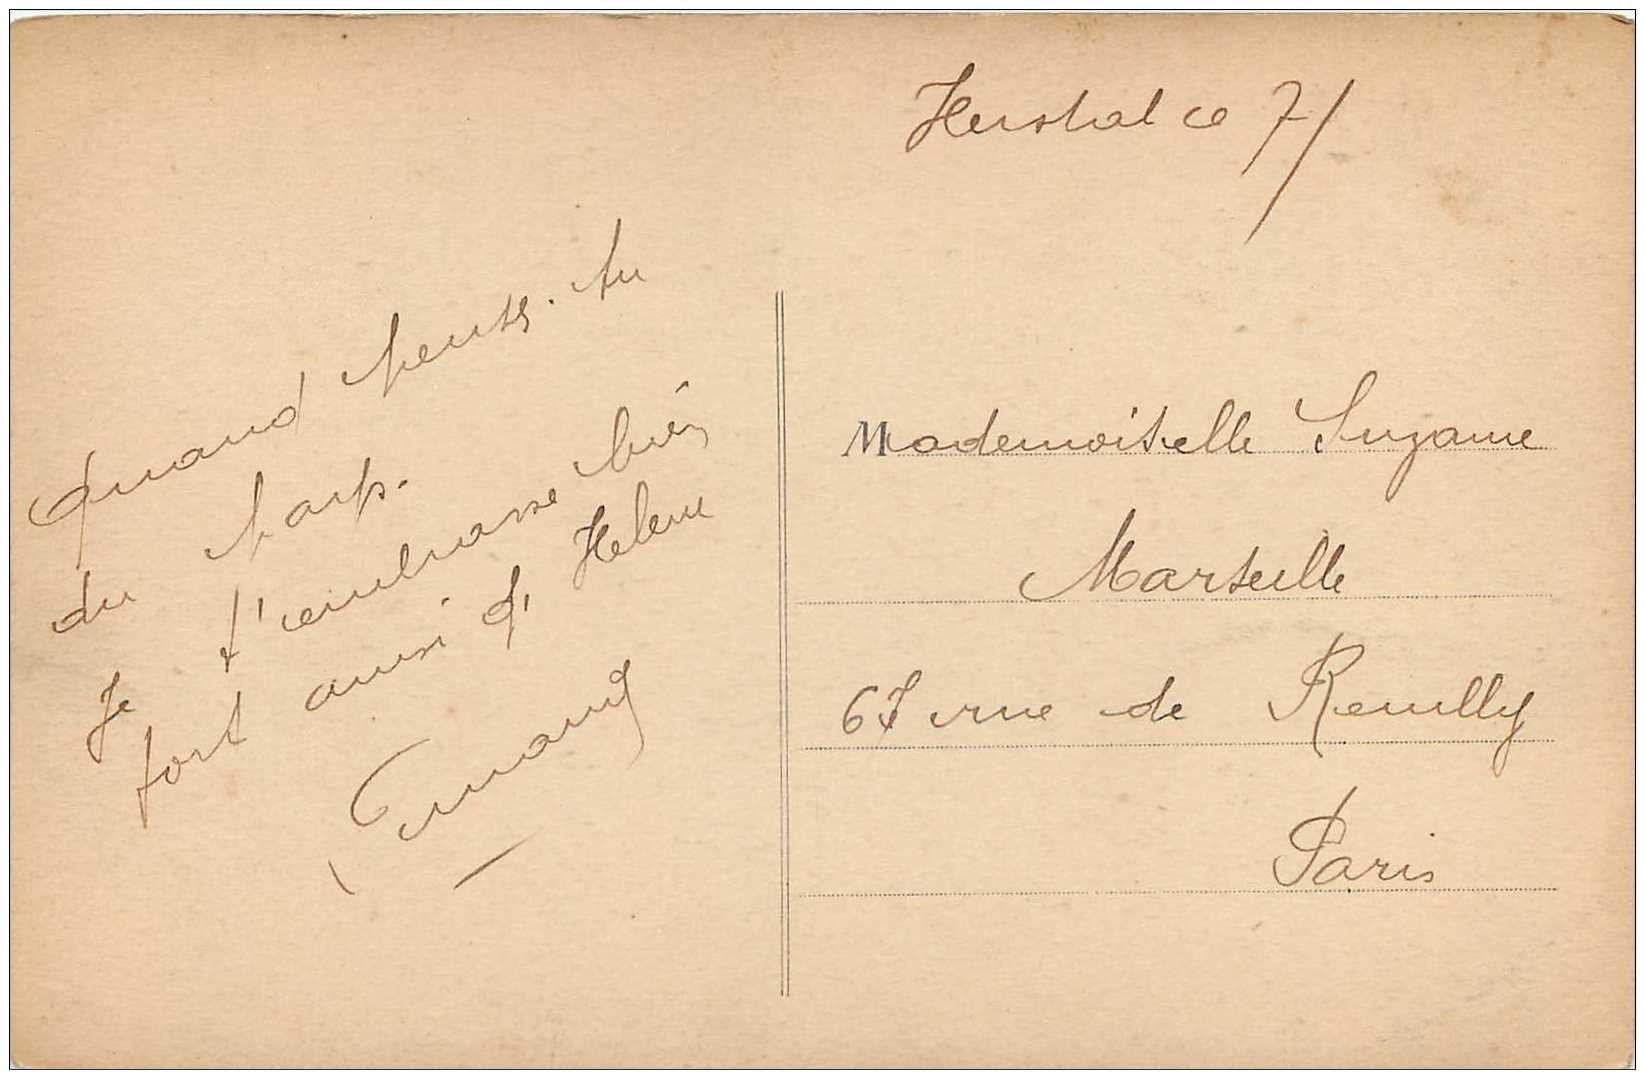 Herstal ce 7/
Quand penses-tu
du
Je t'embrasse bien
fort aussi d' Helene
Mademoiselle Suzanne
Marseille
67 rue de Reuilly
Paris